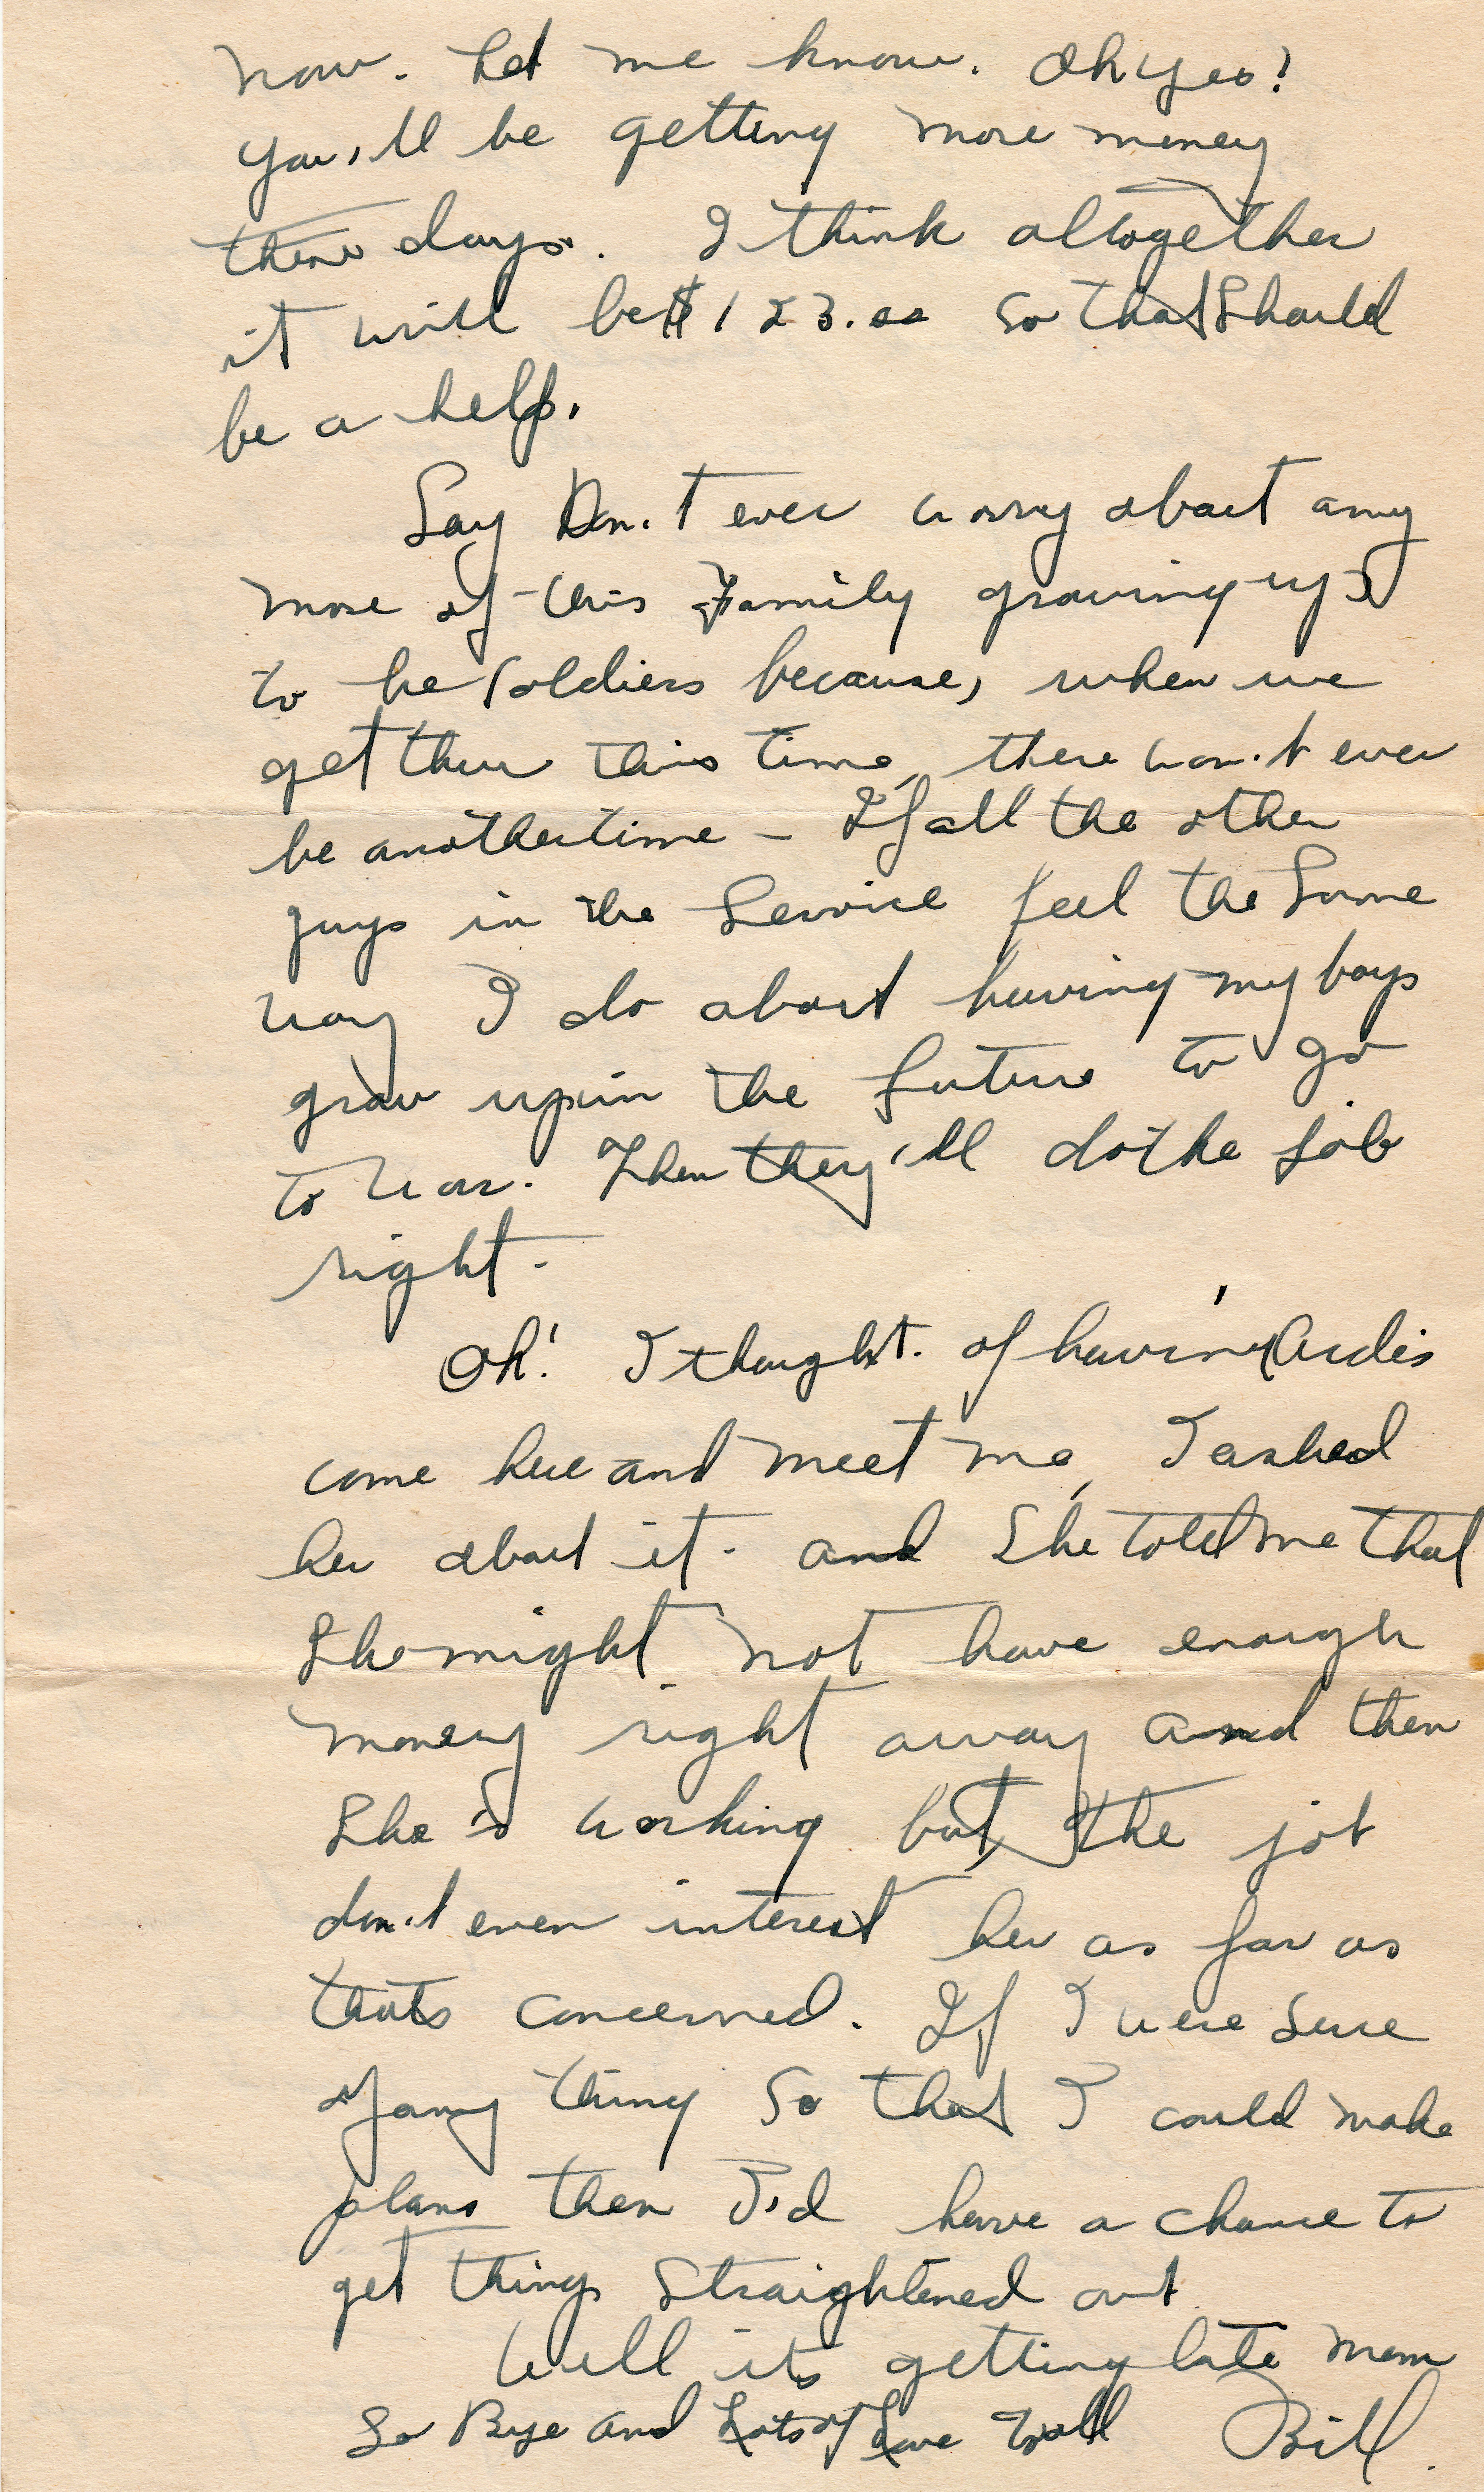 now. Let me know. Oh yes!
You'll be getting more money
these days. I think altogether
it will be $123.00 so that should
be a help.
Say Don't ever worry about any
more of this Family growing up
to be Soldiers because, when we
get thru this time, there won't ever
be another time – If all the other
guys in the Service feel the Same
way I do about having my boys
grow up in the future to go
to war. Then they'll do the job
right.
Oh! I thought of having Ardis
come here and meet me, I asked
her about it. and She told me that
She might not have enough
money right away and then
She's working but the job
don't even interest her as far as
thats concerned. If I were Sure
of any thing So that I could make
plans then I'd have a chance to
get things Straightened out
Well its getting late Mom
So Bye and Lots of Love Bill